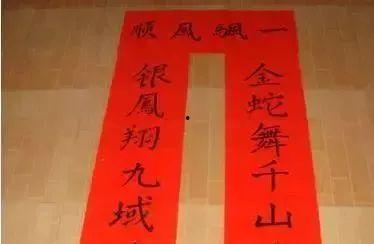 一颿風順
金蛇舞千山
银鳳翔九域